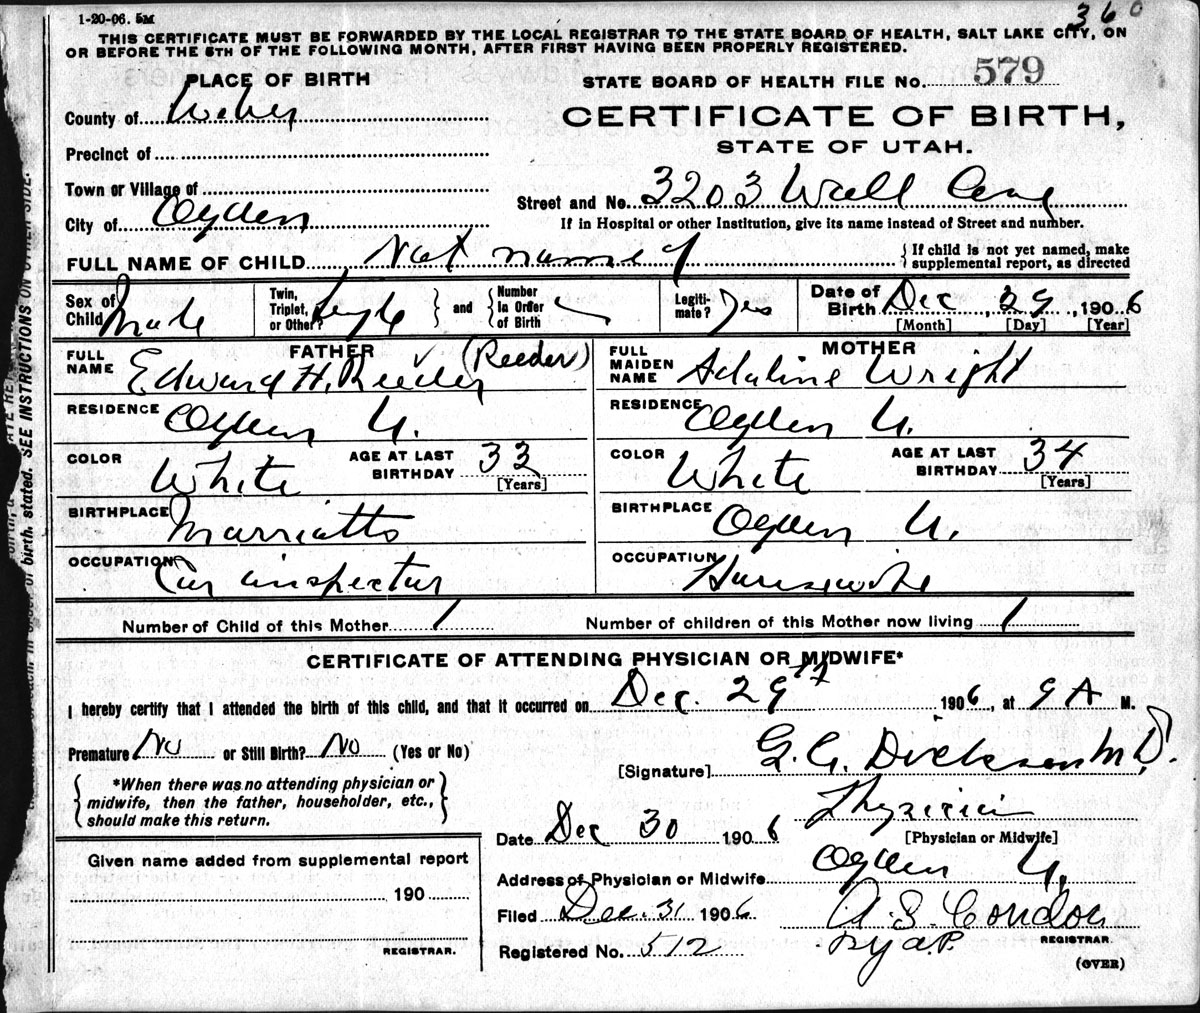 1-20-06. 5M
360
THIS CERTIFICATE MUST BE FORWARDED BY THE LOCAL REGISTRAR TO THE STATE BOARD OF HEALTH, SALT LAKE CITY, ON
OR BEFORE THE 5TH OF THE FOLLOWING MONTH, AFTER FIRST HAVING BEEN PROPERLY REGISTERED.
PLACE OF BIRTH
STATE BOARD OF HEALTH FILE No. 579
County of Weber
CERTIFICATE OF BIRTH,
STATE OF UTAH.
Precinct of
Town or Village of
Street and No. 3203 Wall Ave
City of Ogden
If in Hospital or other Institution, give its name instead of Street and number.
FULL NAME OF CHILD Not named
{ If child is not yet named, make
supplemental report, as directed
Sex of Child Male
Twin, Triplet, or Other? Single } and { Number in Order of Birth
Legiti-mate? Yes
Date of Birth Dec, 29, 1906
[Month] [Day] [Year]
FATHER
FULL NAME Edward H. Reeder (Reeder)
MOTHER
FULL MAIDEN NAME Adaline Wright
RESIDENCE Ogden U.
RESIDENCE Ogden U.
COLOR White AGE AT LAST BIRTHDAY 33 [Years]
COLOR White AGE AT LAST BIRTHDAY 34 [Years]
BIRTHPLACE Marriatts
BIRTHPLACE Ogden U.
OCCUPATION Car inspector
OCCUPATION Housewife
Number of Child of this Mother 1 Number of children of this Mother now living 1
CERTIFICATE OF ATTENDING PHYSICIAN OR MIDWIFE*
I hereby certify that I attended the birth of this child, and that it occurred on Dec. 29th 1906, at 9 A M.
Premature No or Still Birth? No (Yes or No)
[Signature] G. G. Dickson M.D.
{ *When there was no attending physician or
midwife, then the father, householder, etc., }
should make this return.
Physician
[Physician or Midwife]
Date Dec 30 1906
Given name added from supplemental report
Address of Physician or Midwife Ogden U.
190
Filed Dec. 31 1906
A. S. Condon
REGISTRAR.
REGISTRAR.
Registered No. 512
(OVER)
of birth, stated. SEE INSTRUCTIONS ON OTHER SIDE.